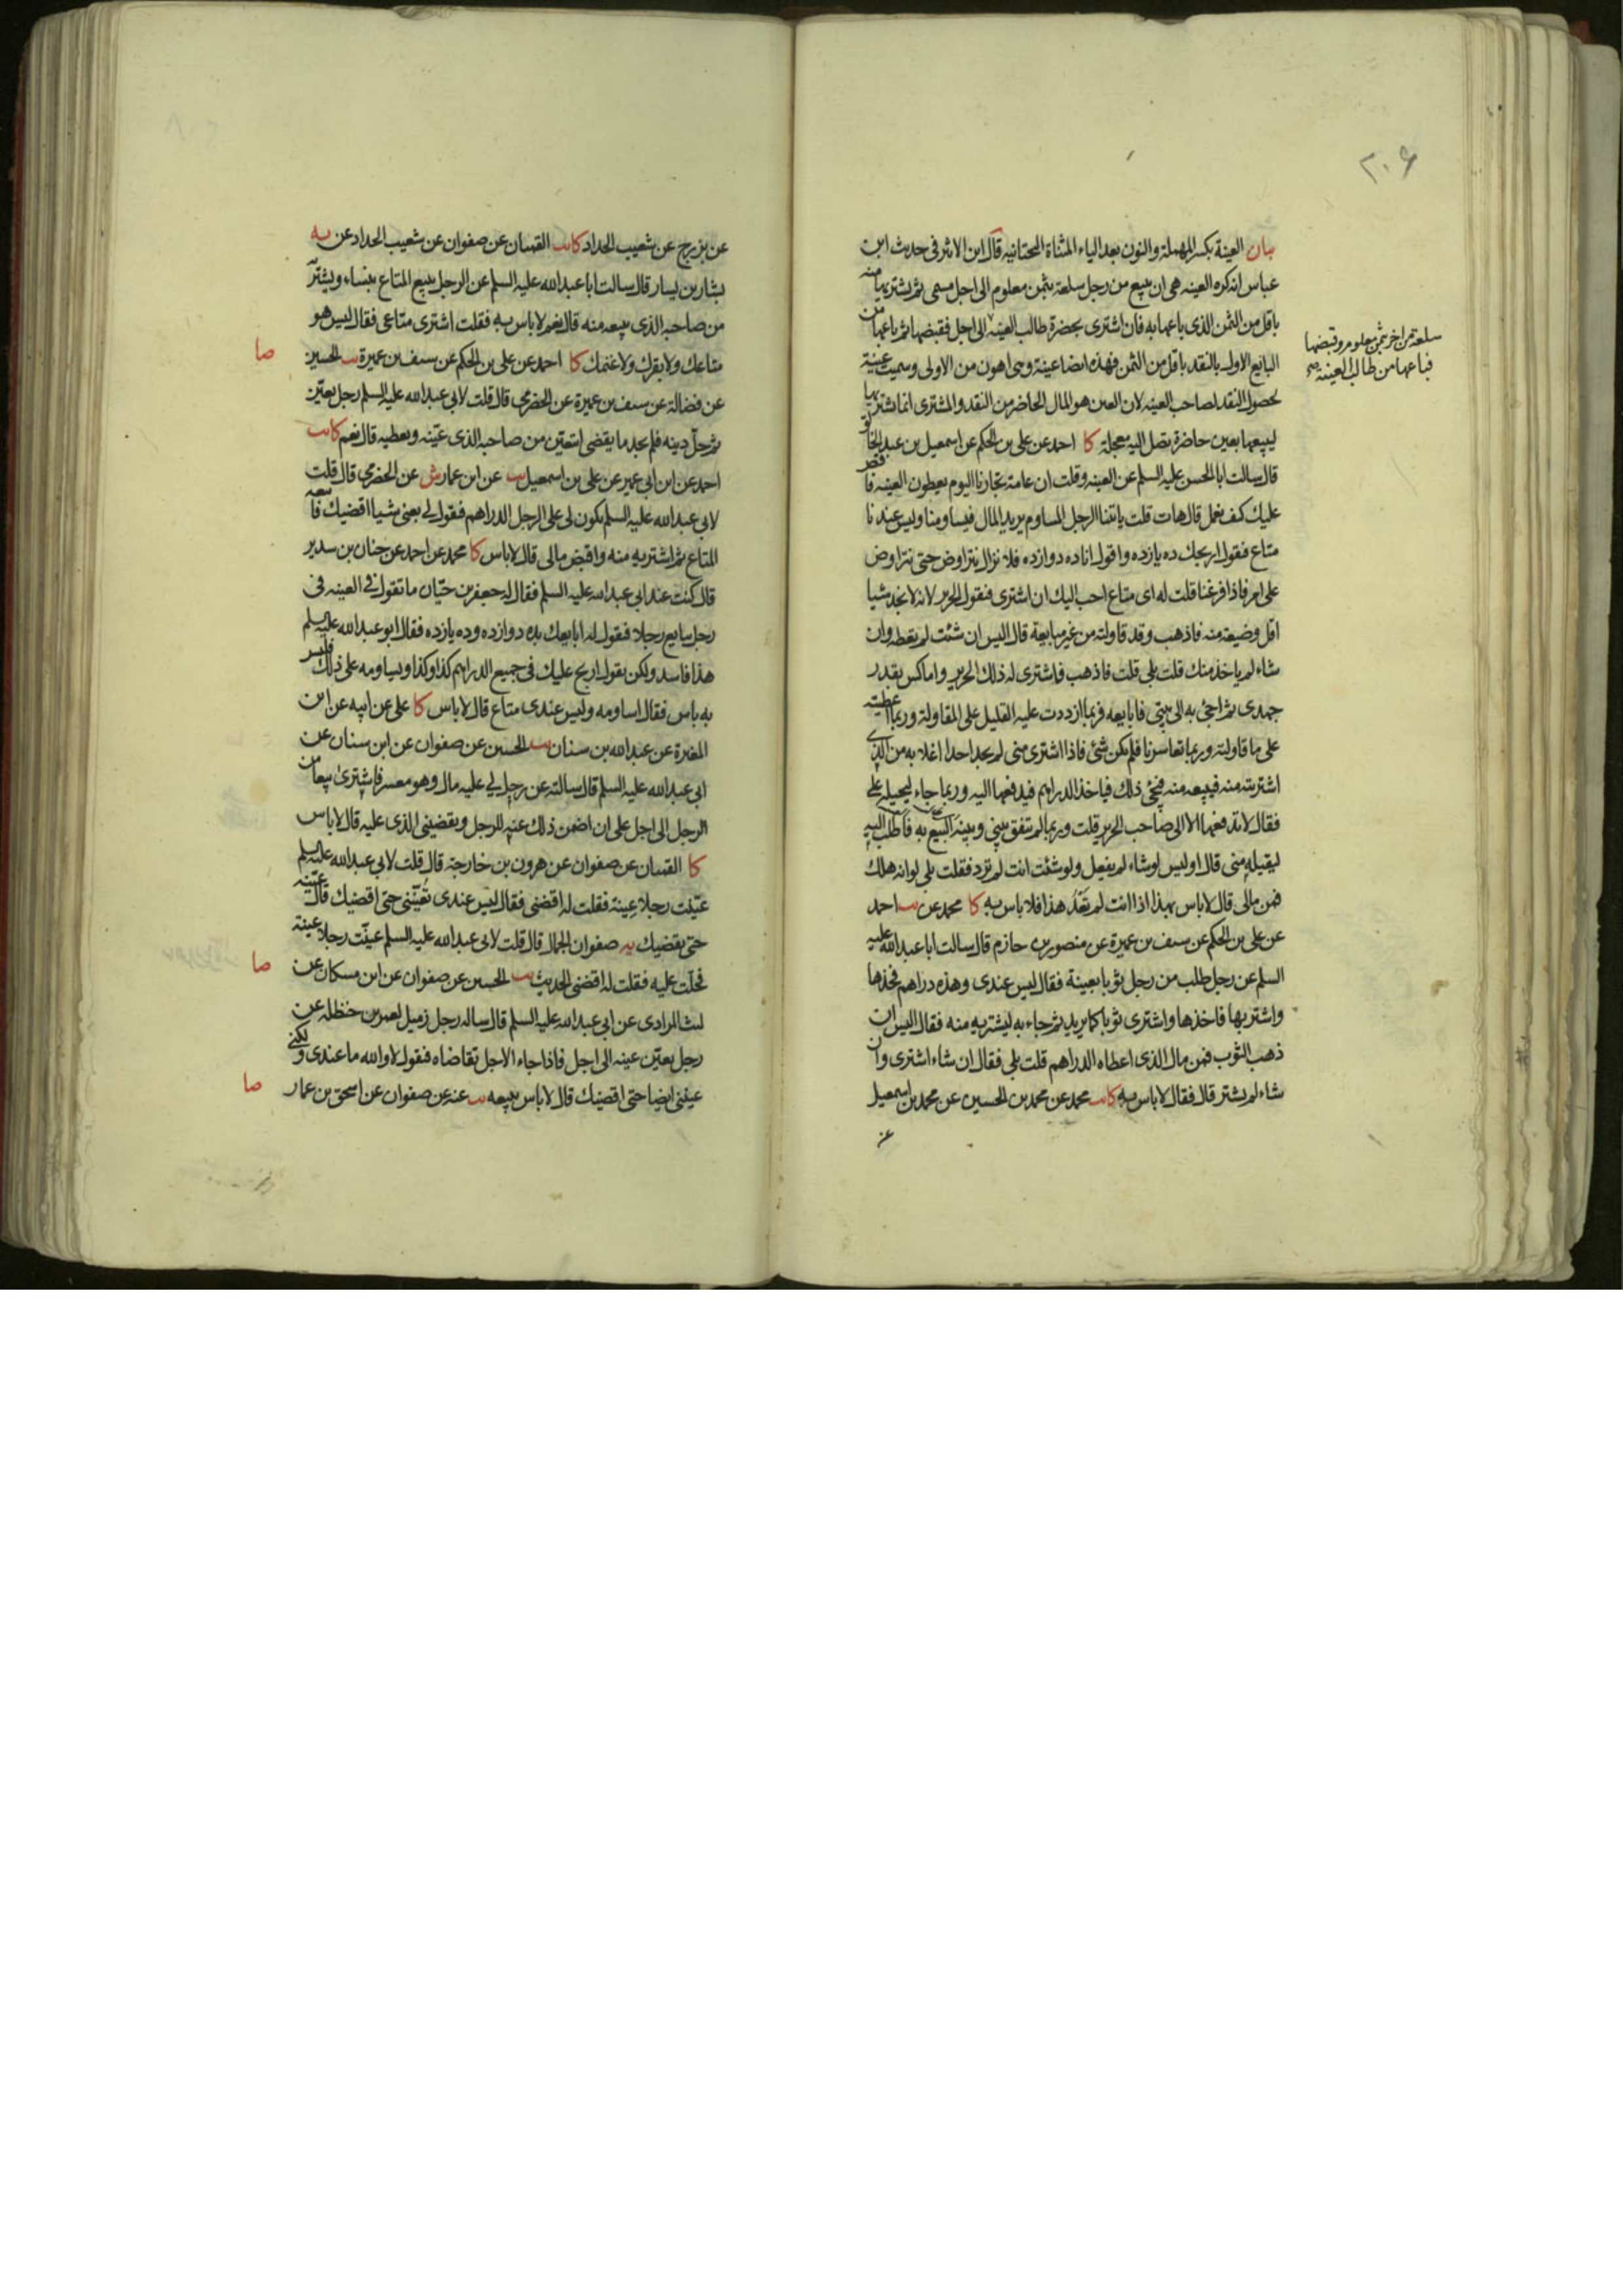 ٢٠۶
بيان العينة بكسر المهملة والنون بعد الياء المثناة التحتانيه قال ابن الاثير فى حديث ابن
عباس انه كره العينه هى ان يبيع من رجل سلعة بثمن معلوم الى اجل مسمى ثم يشتريها منه
باقل من الثمن الذى باعها به فان اشترى بحضرة طالب العينه الى اجل فقبضها ثم باعها من
سلعة من اخر بثمن معلوم وقبضها
فباعها من طالب العينه صح
البايع الاول بالنقد باقل من الثمن فهذه ايضا عينة وهى اهون من الاولى وسميت عينة
لحصول النقد لصاحب العينه لان العين هو المال الحاضر من النقد والمشترى انما يشتريها
ليبيعها بعين حاضرة تصل اليه معجلة كا احمد عن على بن الحكم عن اسمعيل بن عبد الخالق
قال سالت ابا الحسن عليه السلم عن العينه وقلت ان عامة تجارنا اليوم يعطون العينه فاقص
عليك كيف نعمل قال هات قلت ياتينا الرجل المساوم يريد المال فيساومنا وليس عندنا
متاع فيقول اربحك ده يازده واقول انا ده دوازده فلا نزال نتراوض حتى نتراوض
على امر فاذا فرغنا قلت له اى متاع احب اليك ان اشترى فيقول الحرير لانه لا نجد شيا
اقل وضيعة منه فاذهب وقد قاولته من غير مبايعة قال اليس ان شئت لم تعطه وان
شاء لم ياخذ منك قلت بلى قلت فاذهب فاشترى له ذلك الحرير واماكس بقدر
جهدى ثم اجئ به الى بيتى فابايعه فربما ازددت عليه القليل على المقاولة وربما اعطيته
على ما قاولته وربما تعاسرنا فلم يكن شئ فاذا اشترى منى لم يجد احدا اغلا به من الذى
اشتريته منه فيبيعه منه فيجئ ذلك فياخذ الدراهم فيدفعها اليه وربما جاء ليحيله على
فقال لا تدفعها الا الى صاحب الحرير قلت وربما لم يتفق بينى وبينه البيع به فاطلب اليه
ليقيله منى قال اوليس لو شاء لم يفعل ولو شئت انت لم ترد فقلت بلى لو انه هلك
فمن مالى قال لا باس بهذا اذا انت لم تعد هذا فلا باس به كا محمد عن يب احمد
عن على بن الحكم عن سيف بن عميرة عن منصور بن حازم قال سالت ابا عبد الله عليه
السلم عن رجل طلب من رجل ثوبا بعينة فقال ليس عندى وهذه دراهم فخذها
واشتر بها فاخذها واشترى ثوبا كما يريد ثم جاء به ليشتريه منه فقال اليس ان
ذهب الثوب فمن مال الذى اعطاه الدراهم قلت بلى فقال ان شاء اشترى وان
شاء لم يشتر قال فقال لا باس به كا يب محمد عن محمد بن الحسين عن محمد بن اسمعيل
عن
عن بزرج عن شعيب الحداد كا يب القميان عن صفوان عن شعيب الحداد عن يه
بشار بن يسار قال سالت ابا عبد الله عليه السلم عن الرجل يبيع المتاع بنساء ويشتريه
من صاحبه الذى يبيعه منه قال نعم لا باس به فقلت اشترى متاعى فقال ليس هو
متاعك ولا بقرك ولا غنمك كا احمد عن على بن الحكم عن سيف بن عميرة يب الحسين
صا
عن فضالة عن سيف بن عميرة عن الحضرمى قال قلت لابى عبد الله عليه السلم رجل يعين
ثم حل دينه فلم يجد ما يقضى ايتعين من صاحبه الذى عينه ويعطيه قال نعم كا يب
احمد عن ابن ابى عمير عن على بن اسمعيل يب عن ابن عمار ش عن الحضرمى قال قلت
لابى عبد الله عليه السلم يكون لى على الرجل الدراهم فيقول لى بعنى شيا اقضيك فابيعه
المتاع ثم اشتريه منه واقبض مالى قال لا باس كا محمد عن احمد عن حنان بن سدير
قال كنت عند ابى عبد الله عليه السلم فقال له جعفر بن حيان ما تقول فى العينه فى
رجل يبايع رجلا فيقول له ابايعك بده دوازده وده يازده فقال ابو عبد الله عليه السلم
هذا فاسد ولكن يقول اربح عليك فى جميع الدراهم كذا وكذا ويساومه على ذلك فليس
به باس فقال اساومه وليس عندى متاع قال لا باس كا على عن ابيه عن ابن
المغيرة عن عبد الله بن سنان يب الحسين عن صفوان عن ابن سنان عن
ابى عبد الله عليه السلم قال سالته عن رجل لى عليه مال وهو معسر فاشترى بيعا من
الرجل الى اجل على ان اضمن ذلك عنه للرجل ويقضينى الذى عليه قال لا باس
كا القميان عن صفوان عن هرون بن خارجة قال قلت لابى عبد الله عليه السلم
عينت رجلا عينة فقلت له اقضنى فقال ليس عندى تعيننى حتى اقضيك قال عينه
حتى يقضيك يه صفوان الجمال قال قلت لابى عبد الله عليه السلم عينت رجلا عينة
فحلت عليه فقلت له اقضنى الحديث يب الحسين عن صفوان عن ابن مسكان عن
صا
ليث المرادى عن ابى عبد الله عليه السلم قال ساله رجل زميل لعمر بن حنظله عن
رجل يعين عينه الى اجل فاذا جاء الاجل تقاضاه فيقول لا والله ما عندى ولكن
عينى ايضا حتى اقضيك قال لا باس ببيعه يب عنه عن صفوان عن اسحق بن عمار
صا